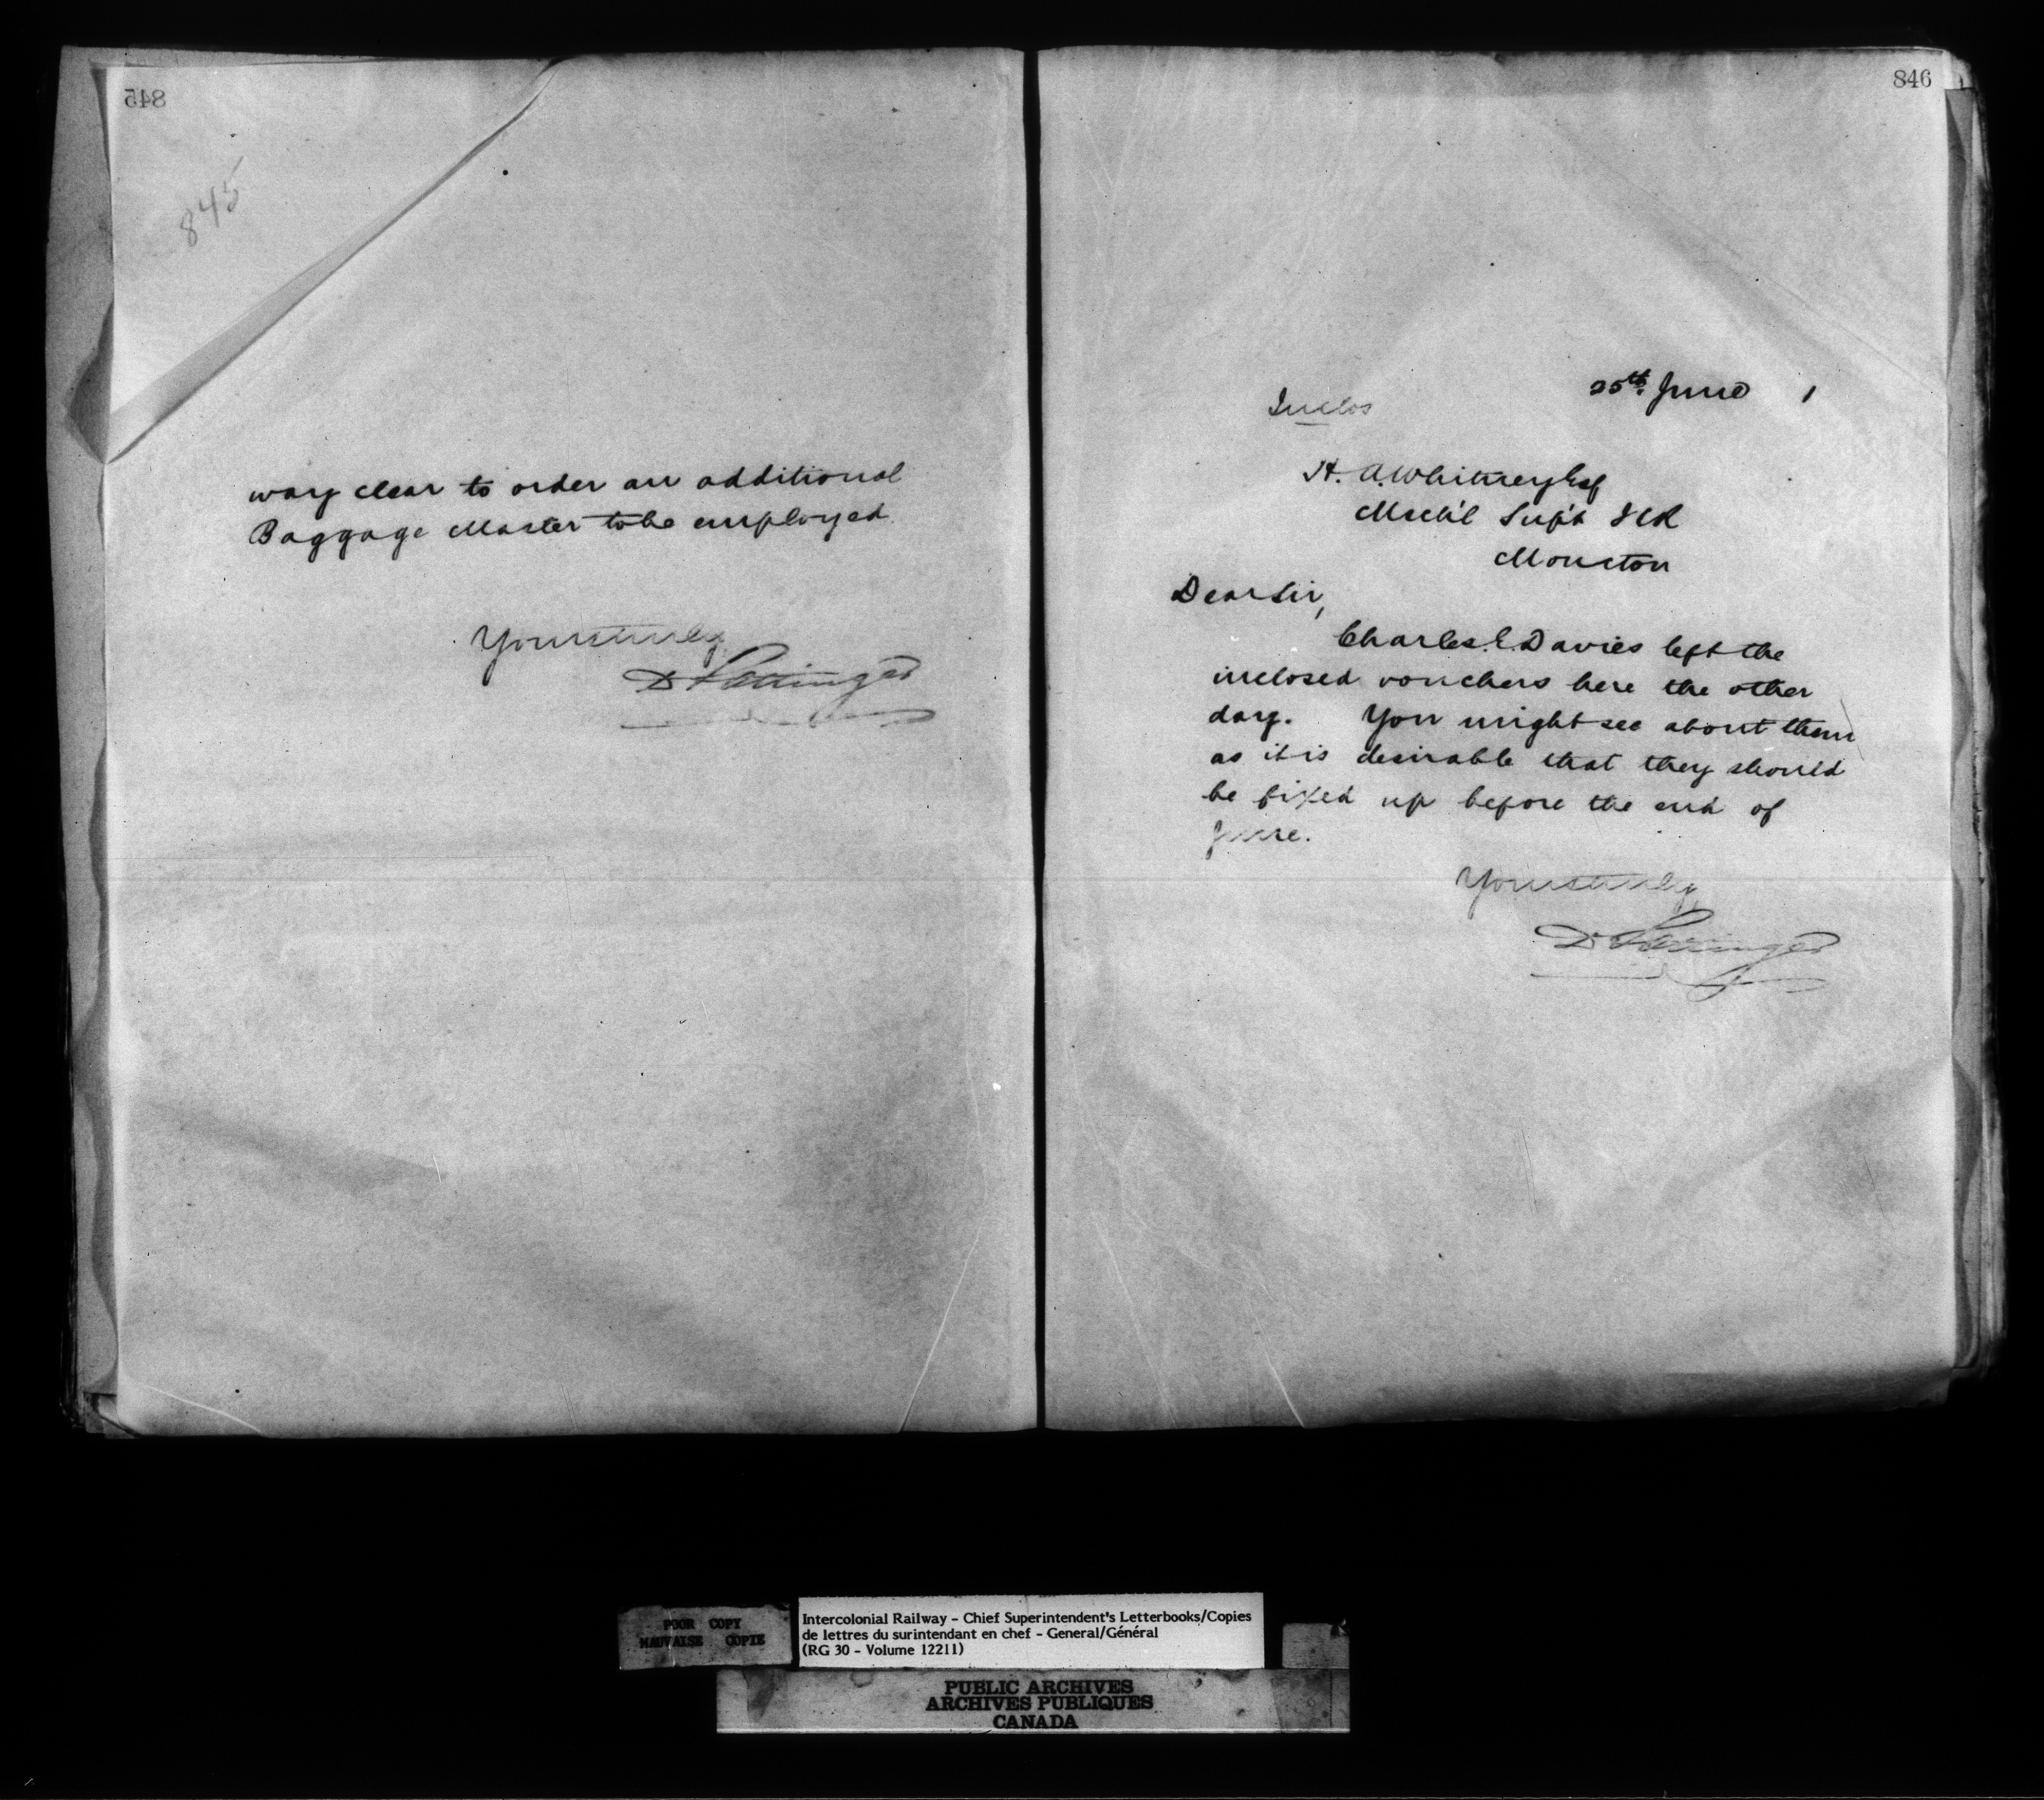 845
845
way clear to order an additional
Baggage Master to be employed.
Yours truly,
D Pottinger
846
25th June 1
Inclos
H. A. Whitney Esq
Mech'l Sup't ICR
Moncton
Dear Sir,
Charles. E. Davies left the
inclosed vouchers here the other
day. You might see about them
as it is desirable that they should
be fixed up before the end of
June.
Yours truly,
D Pottinger
POOR COPY
MAUVAISE COPIE
Intercolonial Railway - Chief Superintendent's Letterbooks/Copies
de lettres du surintendant en chef - General/Général
(RG 30 - Volume 12211)
PUBLIC ARCHIVES
ARCHIVES PUBLIQUES
CANADA